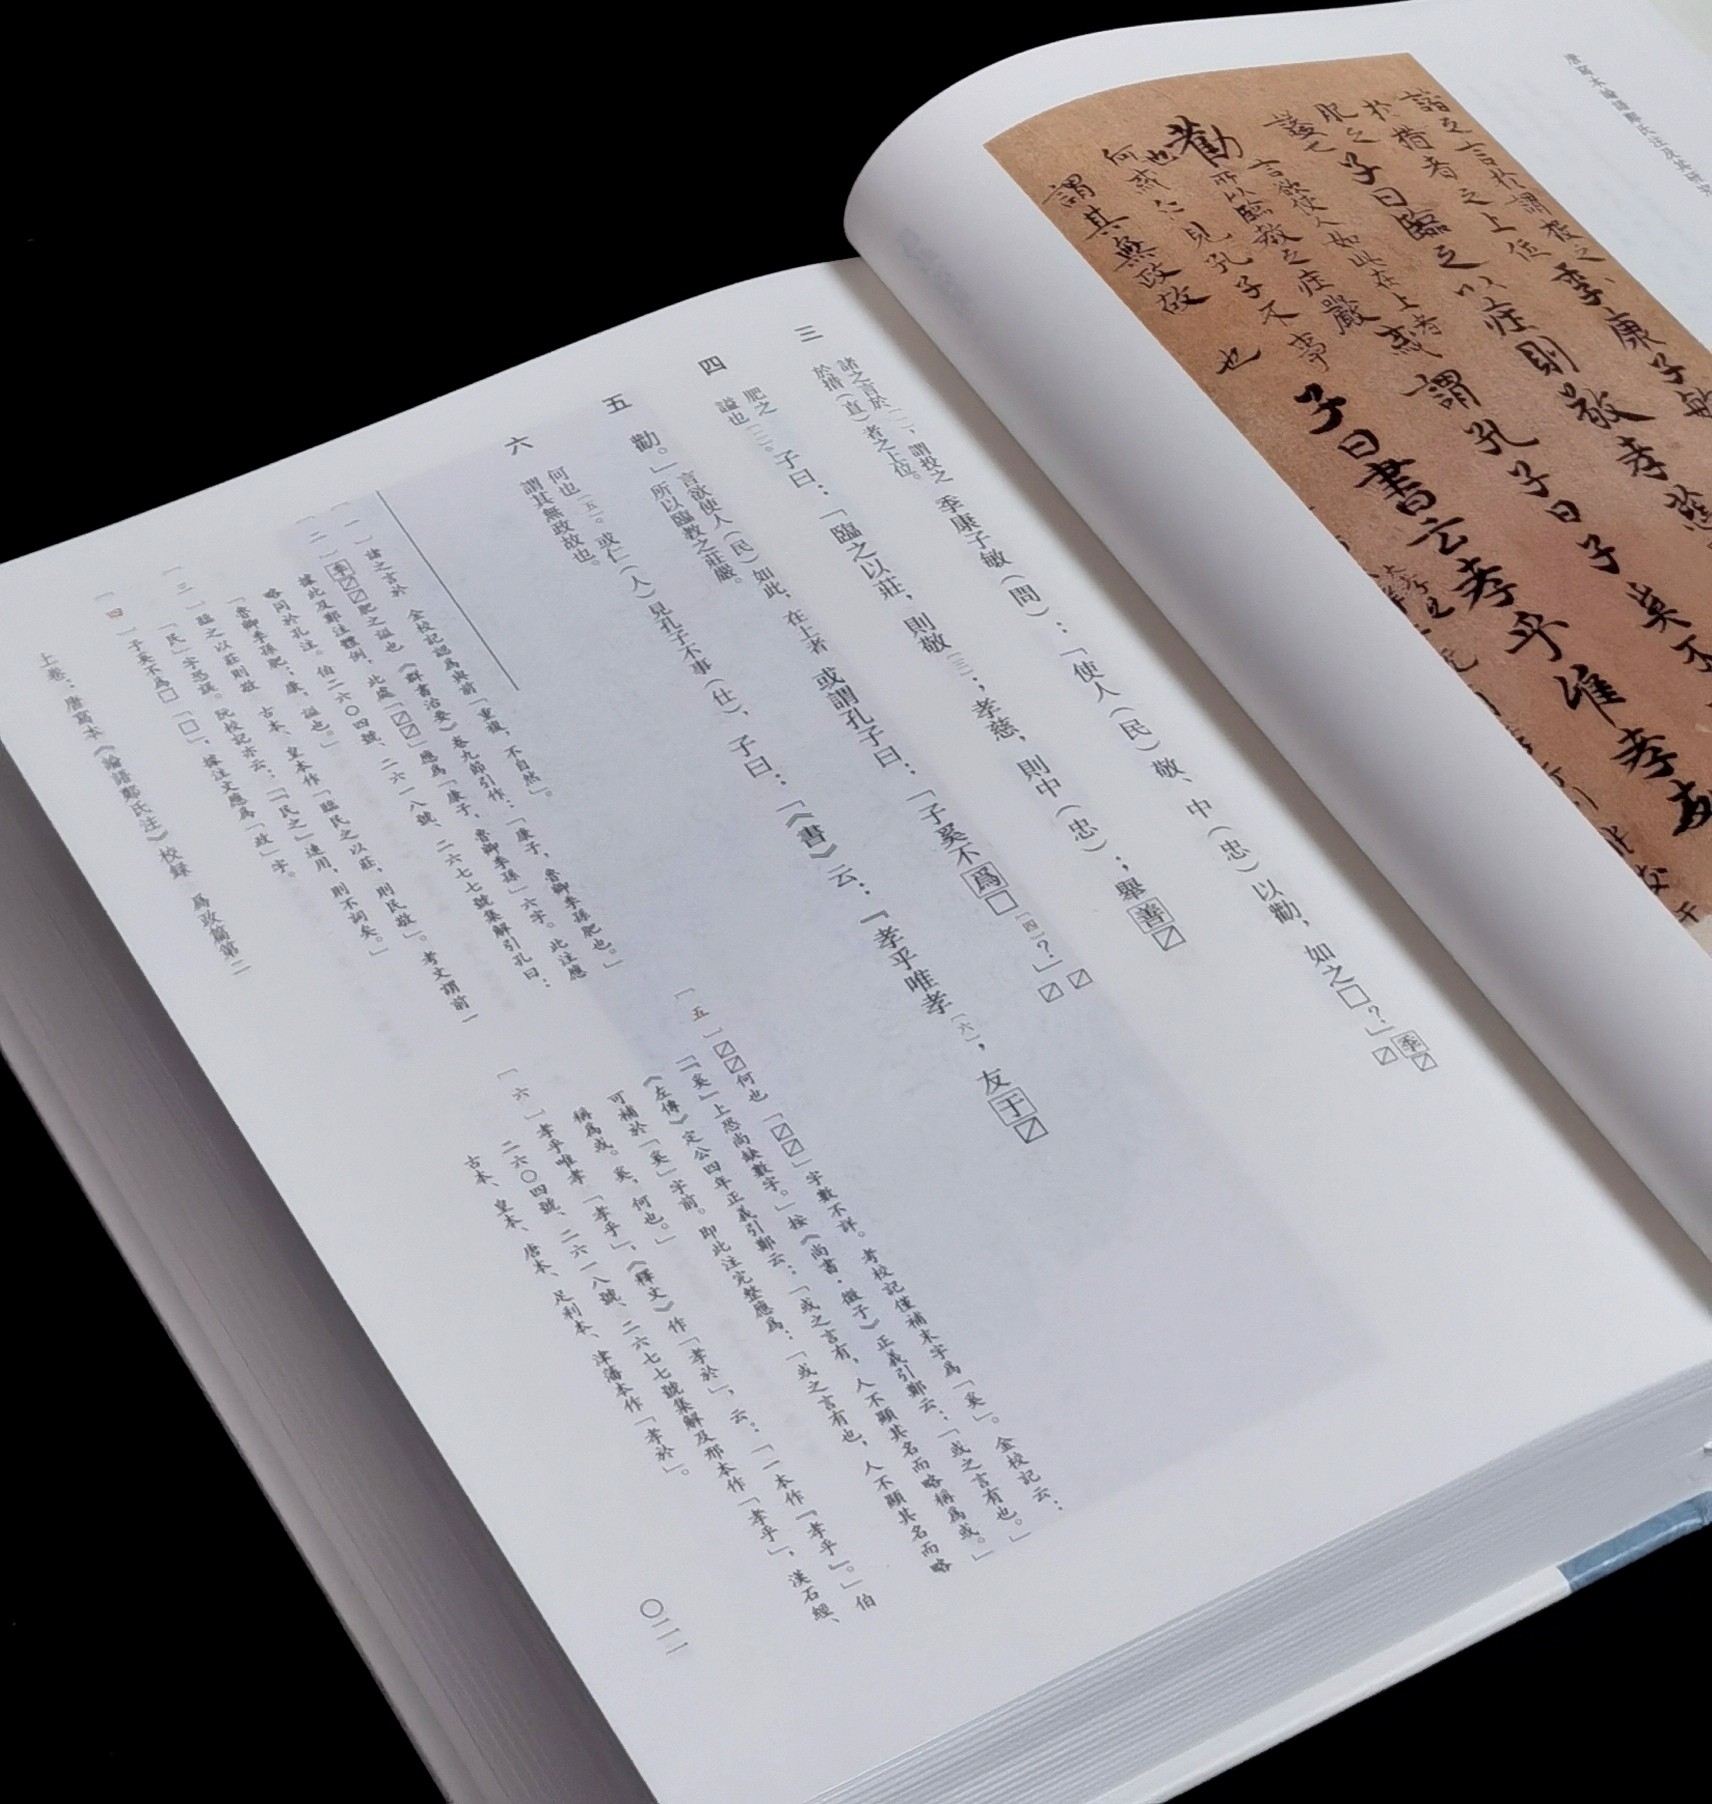 唐寫本論語鄭氏注及其研究
諸之言於謂投之季康子敏
於措者之上位
肥之子曰臨之以莊則敬孝慈
謚也
言欲使人如此在上者或謂孔子曰子奚不
勸所以臨教之莊嚴
何也或仁見孔子不事子曰書云孝乎唯孝友
謂其無政故也
三 諸之言於〔一〕,謂投之於措(直)者之上位。季康子敏(問):「使人(民)敬、中(忠)以勸,如之□?」季
四 肥之謚也〔二〕。子曰:「臨之以莊,則敬〔三〕;孝慈,則中(忠);舉善
五 勸。」言欲使人(民)如此,在上者所以臨教之莊嚴。或謂孔子曰:「子奚不爲□〔四〕?」
六 何也〔五〕。或仁(人)見孔子不事(仕),謂其無政故也。子曰:「《書》云:『孝乎唯孝〔六〕,友于
〔一〕諸之言於 金校記認爲與前「重複,不自然」。
〔二〕季肥之謚也 《群書治要》卷九節引作:「康子,魯卿季孫肥也。」
據此及鄭注體例,此處「」應爲「康子,魯卿季孫」六字。此注應
略同於孔注。伯二六〇四號、二六一八號、二六七七號集解引孔曰:
「魯卿季孫肥;康,謚也。」
〔三〕臨之以莊則敬 古本、皇本作「臨民之以莊,則民敬」。考文謂前一
「民」字恐誤。阮校記亦云:「『民之』連用,則不詞矣。」
〔四〕子奚不爲□ 「□」,據注文應爲「政」字。
〔五〕何也 「」字數不詳。考校記僅補末字爲「奚」。金校記云:
「『奚』上恐尚缺數字。」按《尚書·微子》正義引鄭云:「或之言有也。」
《左傳》定公四年正義引鄭云:「或之言有,人不顯其名而略稱爲或。」
可補於「奚」字前。即此注完整應爲:「或之言有也,人不顯其名而略
稱爲或。奚,何也。」
〔六〕孝乎唯孝 「孝乎」,《釋文》作「孝於」,云:「一本作『孝乎』。」伯
二六〇四號、二六一八號、二六七七號集解及邢本作「孝乎」,漢石經、
古本、皇本、唐本、足利本、津藩本作「孝於」。
上卷:唐寫本《論語鄭氏注》校録 爲政篇第二
〇二一